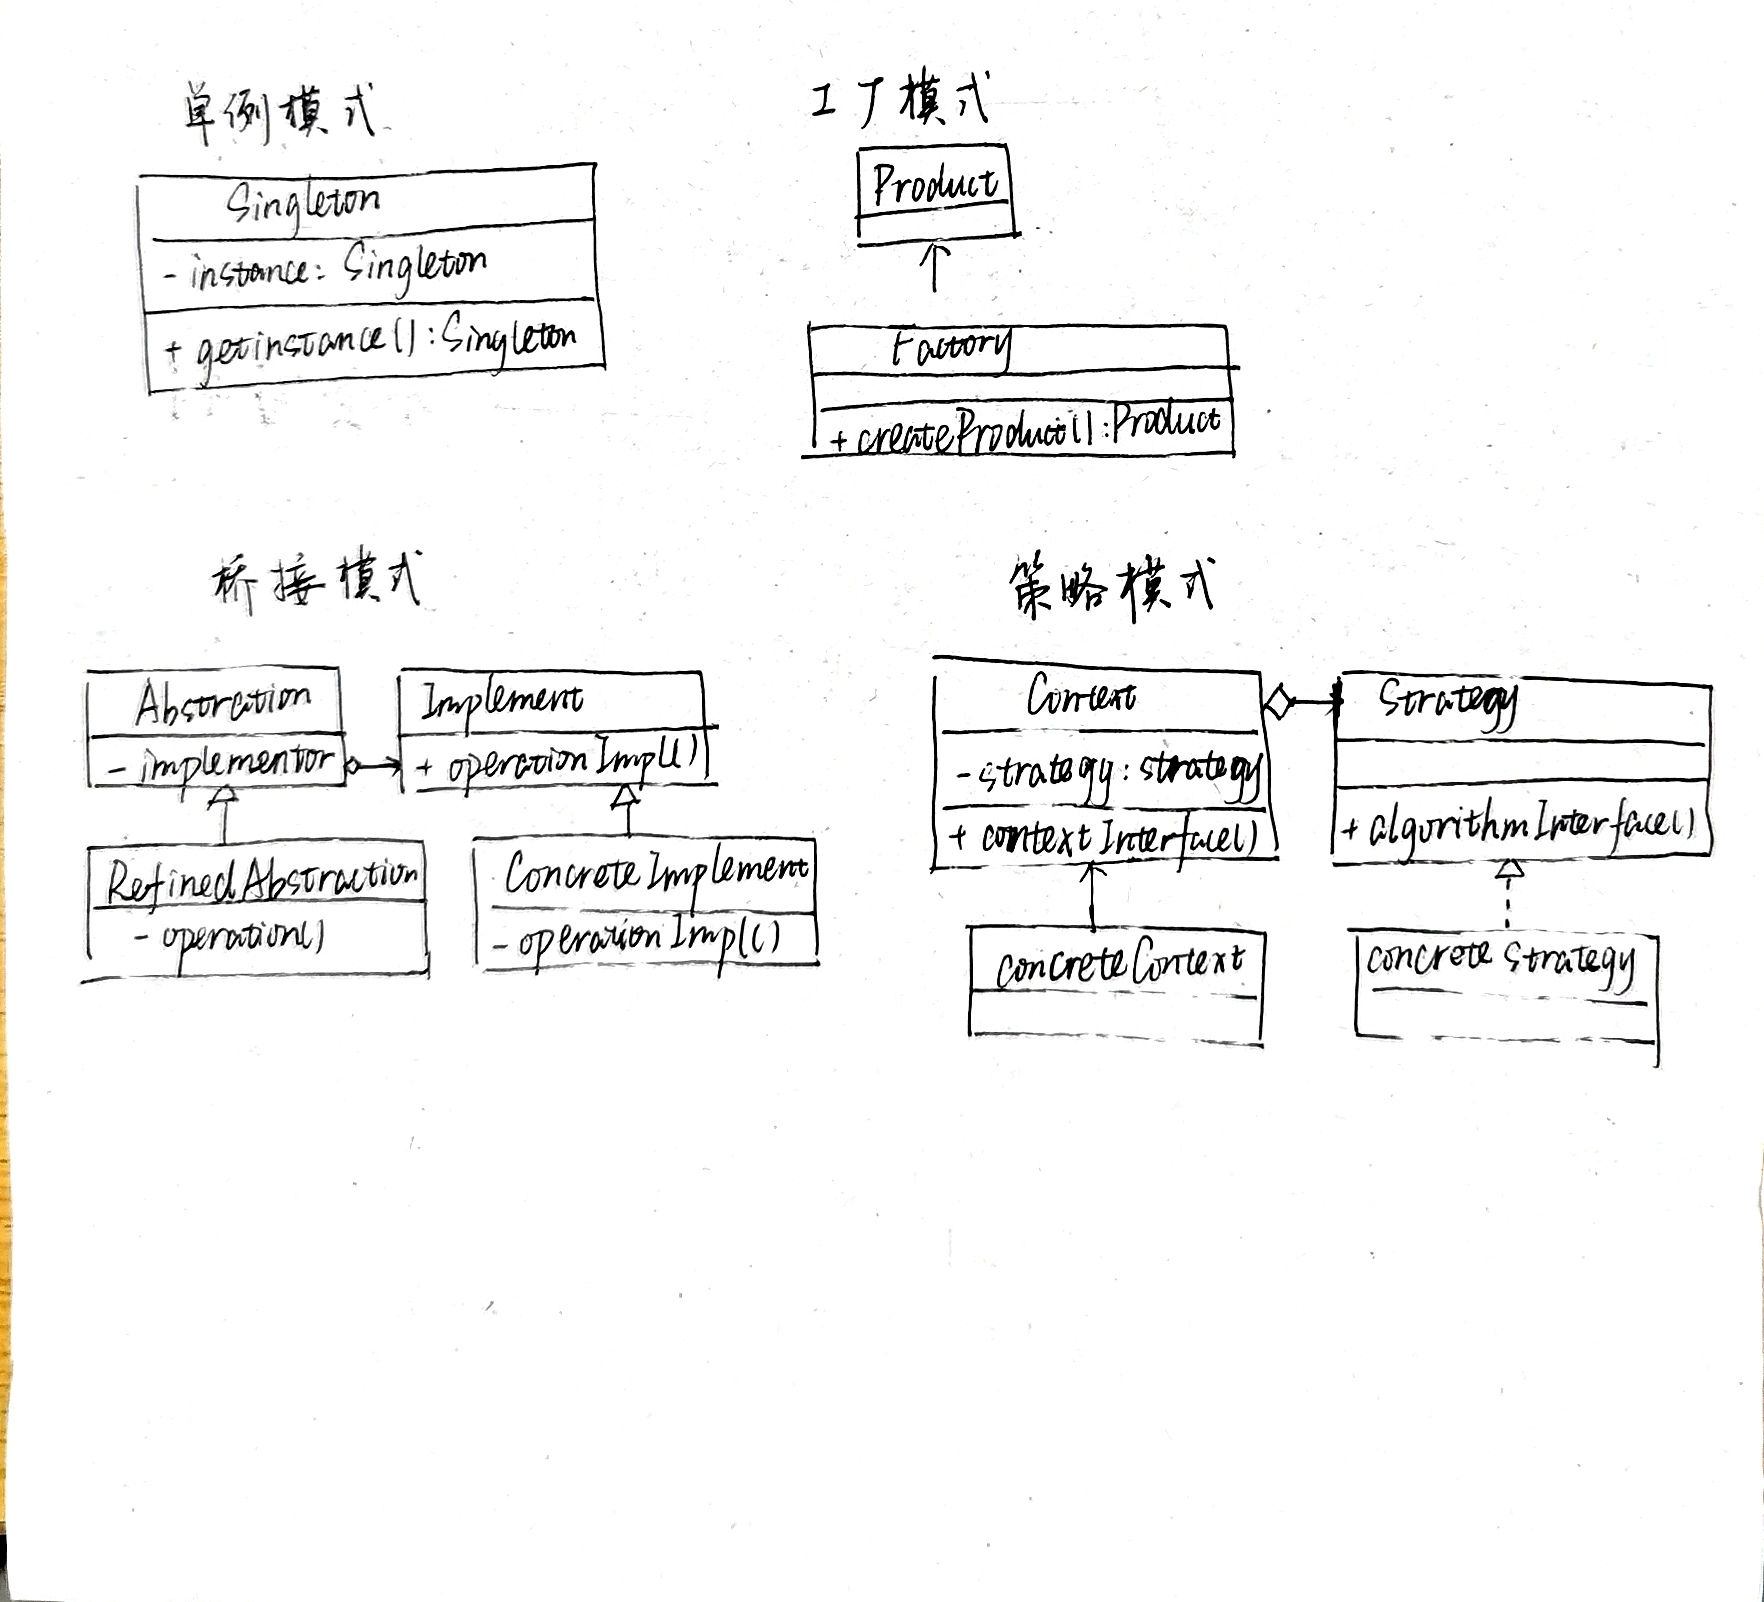 单例模式
Singleton
- instance: Singleton
+ getinstance(): Singleton
工厂模式
Product
Factory
+ createProduct(): Product
桥接模式
Abstration
- implementor
Implement
+ operationImpl()
RefinedAbstraction
- operation()
ConcreteImplement
- operationImpl()
策略模式
Context
- strategy: strategy
+ contextInterface()
Strategy
+ algorithmInterface()
concreteContext
concreteStrategy